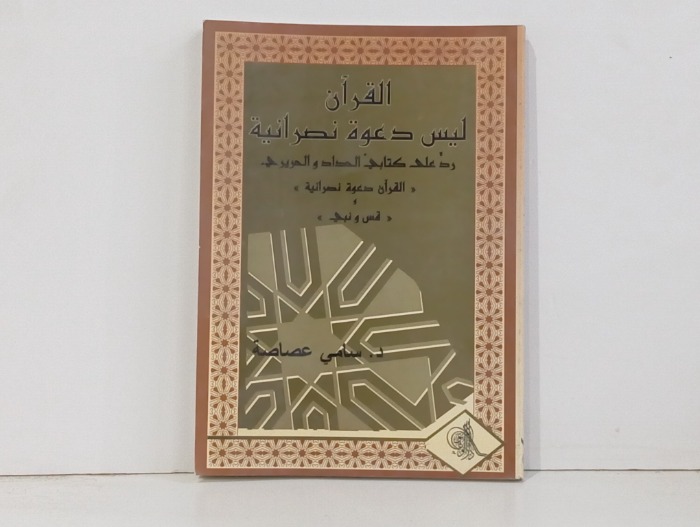 القرآن
ليس دعوة نصرانية
ردٌّ على كتابيّ الحداد و الحريري
« القرآن دعوة نصرانية »
و
« قس و نبي »
د. سامي عصاصة